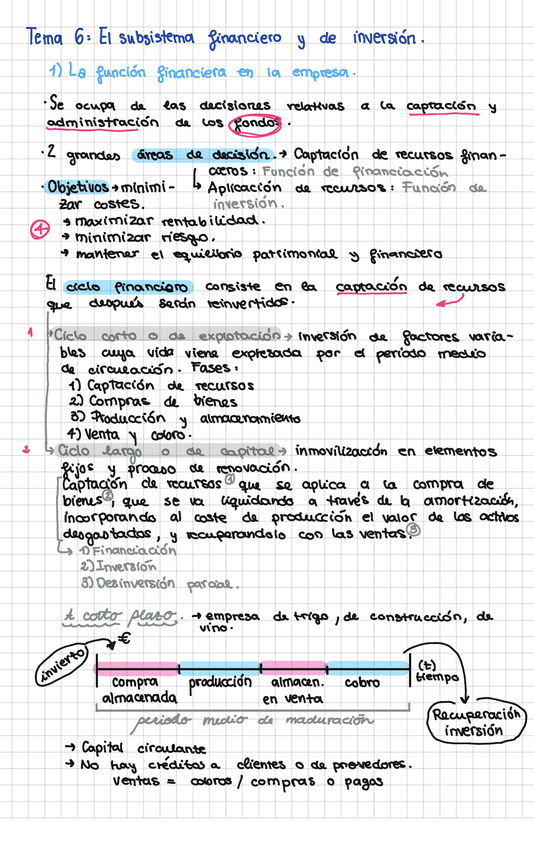 Tema 6: El subsistema financiero y de inversión.
1) La función financiera en la empresa.
· Se ocupa de las decisiones relativas a la captación y
administración de los fondos.
· 2 grandes áreas de decisión. → Captación de recursos finan-
cieros: Función de financiación
↳ Aplicación de recursos: Función de
inversión.
· Objetivos → minimi-
zar costes.
→ maximizar rentabilidad.
④ → minimizar riesgo.
→ mantener el equilibrio patrimonial y financiero
El ciclo financiero consiste en la captación de recursos
que después serán reinvertidos.
1 → Ciclo corto o de explotación → inversión de factores varia-
bles cuya vida viene expresada por el periodo medio
de circulación. Fases:
1) Captación de recursos
2) Compras de bienes
3) Producción y almacenamiento
4) Venta y cobro.
2 ↳ Ciclo largo o de capital → inmovilización en elementos
fijos y proceso de renovación.
Captación de recursos① que se aplica a la compra de
bienes②, que se va liquidando a través de la amortización,
incorporando al coste de producción el valor de los activos
desgastados, y recuperandolo con las ventas.③
↳ 1) Financiación
2) Inversión
3) Desinversión parcial.
A corto plazo. → empresa de trigo, de construcción, de
vino.
invierto → €
compra producción almacen. cobro (t)
almacenada en venta tiempo
periodo medio de maduración
Recuperación
inversión
→ Capital circulante
→ No hay créditos a clientes o de provedores.
ventas = cobros / compras o pagos